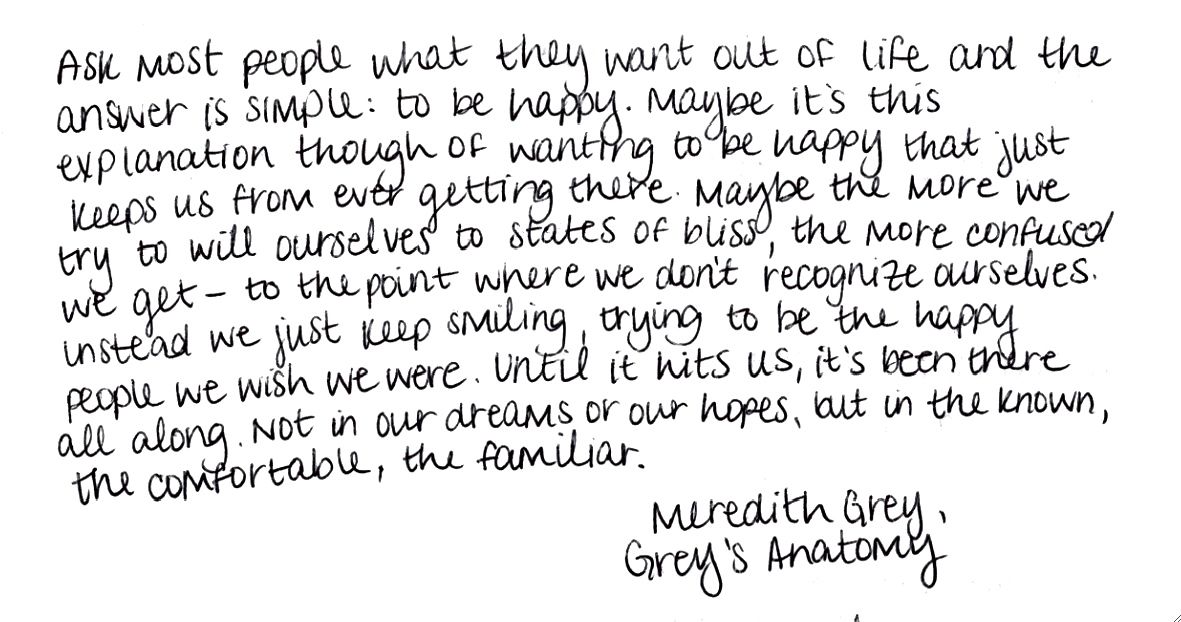 Ask most people what they want out of life and the
answer is simple: to be happy. Maybe it's this
explanation though of wanting to be happy that just
keeps us from ever getting there. Maybe the more we
try to will ourselves to states of bliss, the more confused
we get - to the point where we don't recognize ourselves.
instead we just keep smiling, trying to be the happy
people we wish we were. Until it hits us, it's been there
all along. Not in our dreams or our hopes, but in the known,
the comfortable, the familiar.
Meredith Grey,
Grey's Anatomy